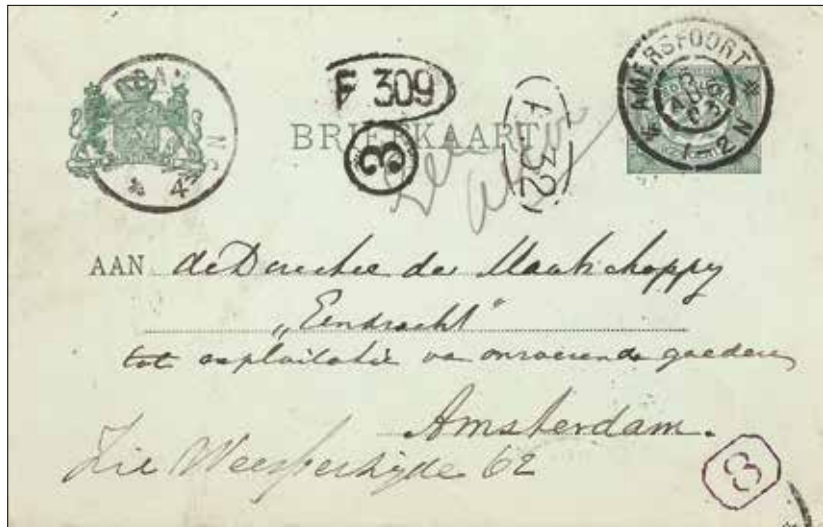 DAM
4
5N
F 309
3
BRIEFKAART
A 32
AMERSFOORT
5
AUG
1-2N
AAN de Directie der Maatschappy
„Eendracht"
tot exploitatie van onroerende goederen
Amsterdam.
Zie Weesperzijde 62
3